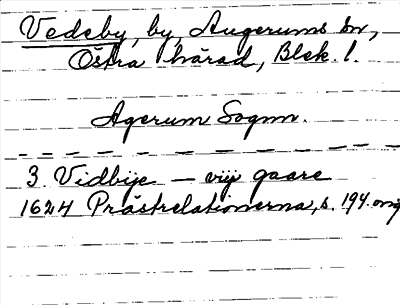 Vedeby, by, Augerums sn,
Östra härad, Blek. l.
Agerum Sognn.
3 Vidbije — vij gaare
1624 Prästrelationerna, s. 194. orig